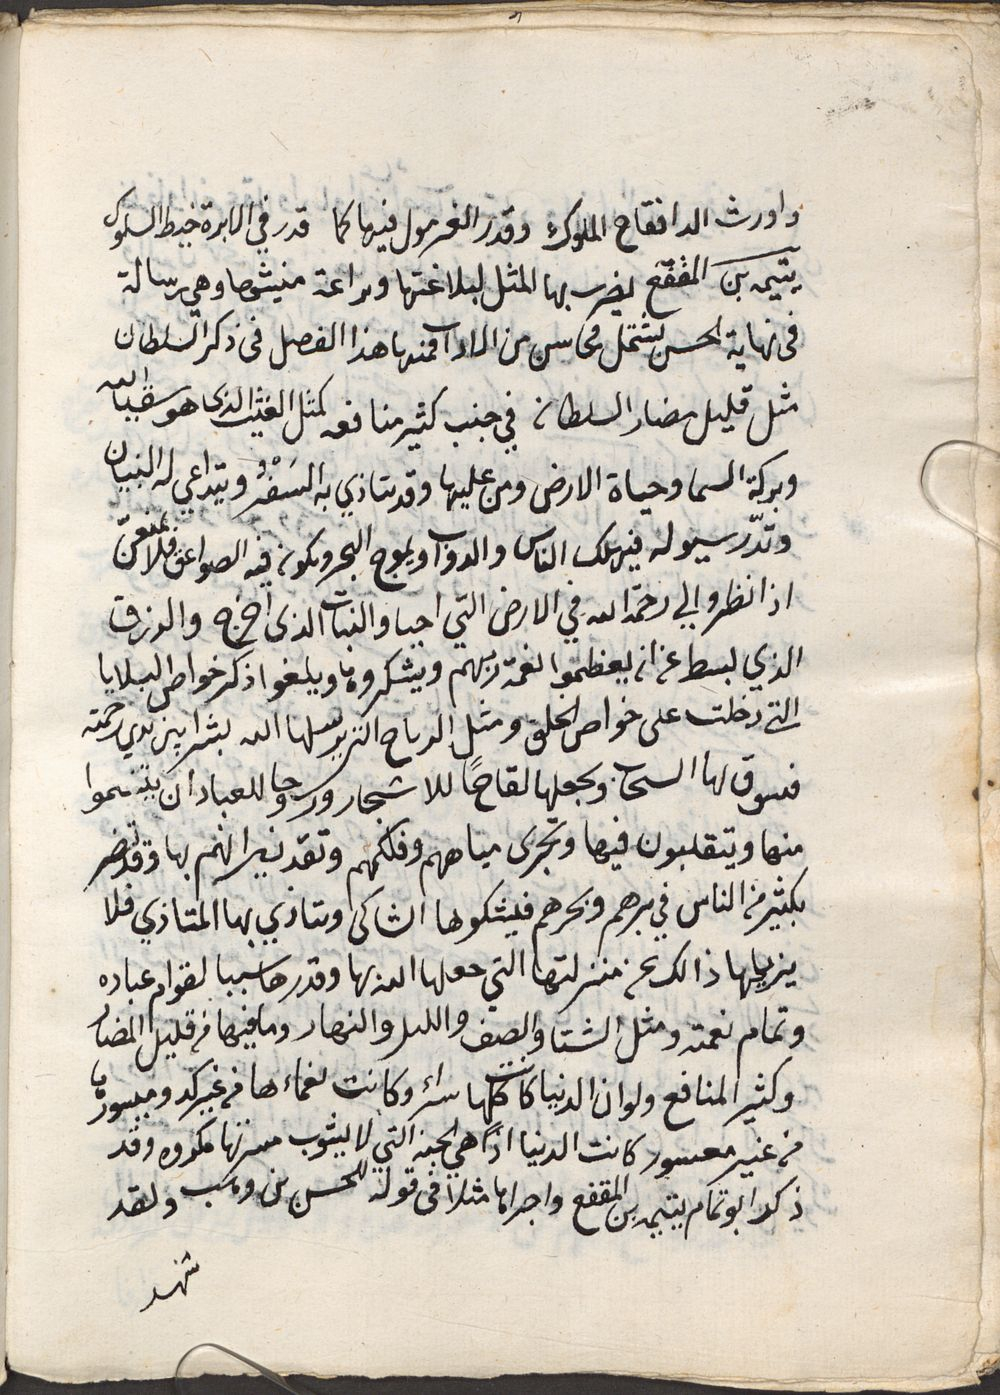 واورث الدا فقاح الملوك وقدر الغرمول فيها كما قدر في الابرة خيط السلوك
يتيمه بن المقفع يضرب بها المثل لبلاغتها وبراعة منيشها وهي رسالة
في نهاية الحسن تشتمل محاسن من الاداب فمنها هذا الفصل في ذكر السلطان
مثل قليل مضار السلطان في جنب كثير منافعه كمثل الغيث الذي هو سقيا الله
وبركة السما وحياة الارض ومن عليها وقد يتاذي به السفر ويتداعي له البنيان
وتدر سيوله فيهلك الناس والدواب ويموج البحر ويكون فيه الصواعق فلا يمنعن
اذا نظروا الي رحمة الله في الارض التي احيا والنبات الذي اخرج والرزق
الذي بسط عن ان يعظموا نعمة ربهم ويشكروها ويلغوا ذكر خواص البلايا
التي دخلت على خواص الخلق ومثل الرياح التي يرسلها الله بشرا بين يدي رحمته
فيسوق لها السحاب ويجعلها لقاحًا للاشجار وروحا للعباد ان يتنسموا
منها ويتقلبون فيها وتجري مياههم وفلكهم وتقد نيرانهم بها وقد تضر
بكثير من الناس في برهم وبحرهم فيشكوها الشاكي ويتاذي بها المتاذي فلا
يزيلها ذالك عن منزلتها التي جعلها الله بها وقدرها سببا لقوام عباده
وتمام نعمته ومثل الشتا والصيف والليل والنهار وما فيها من قليل المضار
وكثير المنافع ولوان الدنيا كانت كلها سراء وكانت نعماءها من غير كد وميسورها
من غير معسور كانت الدنيا اذًا هي الجنة التي لا يشوب مسرتها مكروه وقد
ذكر ابو تمام يتيمه بن المقفع واجراها مثلا في قوله للحسن بن وهب ولقد
شهد